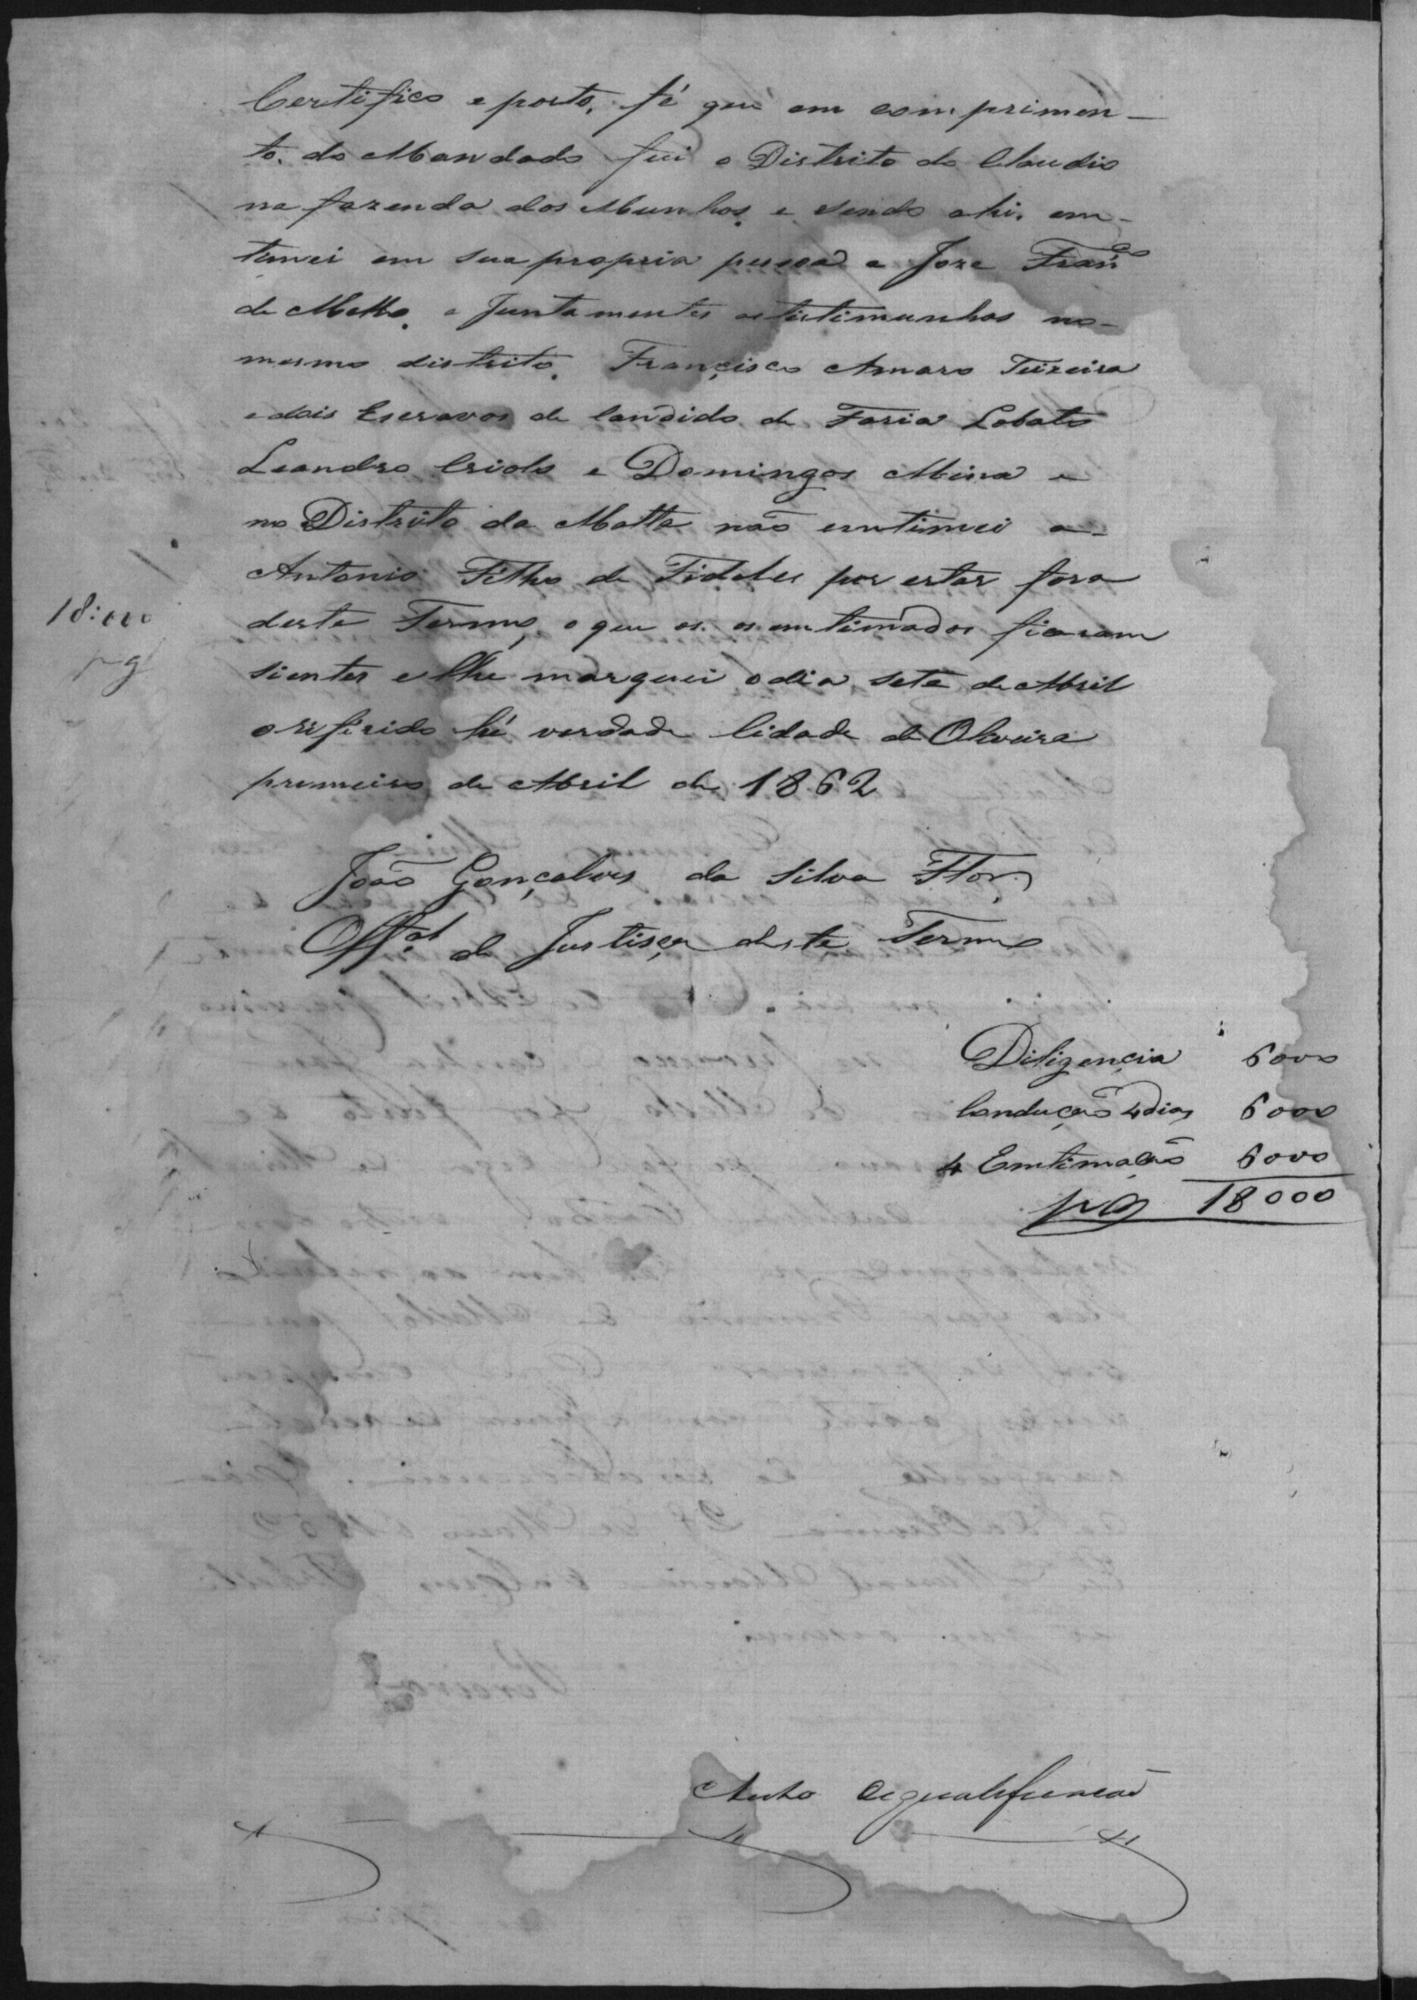 Certifico e porto, fé que em comprimen-
to do Mandado fui o Distrito do Claudio
na fazenda dos Munhos e sendo ahi, em-
timei em sua propria pessoa a Joze Fran.co
de Mello e Juntamentes as testimunhas no-
mesmo distrito. Francisco Amaro Teixeira
e dois Escravos de Candido de Faria Lobato
Leandro Criolo e Domingos Mina e
no Distrito da Matta não emtimei a-
Antonio Filho de Fidelis por estar fora
deste Termo, o que os os emtimados ficaram
sientes e lhe marquei o dia sete de Abril
o refirido hé verdade Cidade de Oliveira
primeiro de Abril de 1862
18:000
pg
João Gonçalves da Silva Flor,
Off.al de Justisça deste Termo
Diligençia 6000
Conducão 4 dias 6000
4 Emtimacãs 6000
pg 18000
Auto de qualificacão